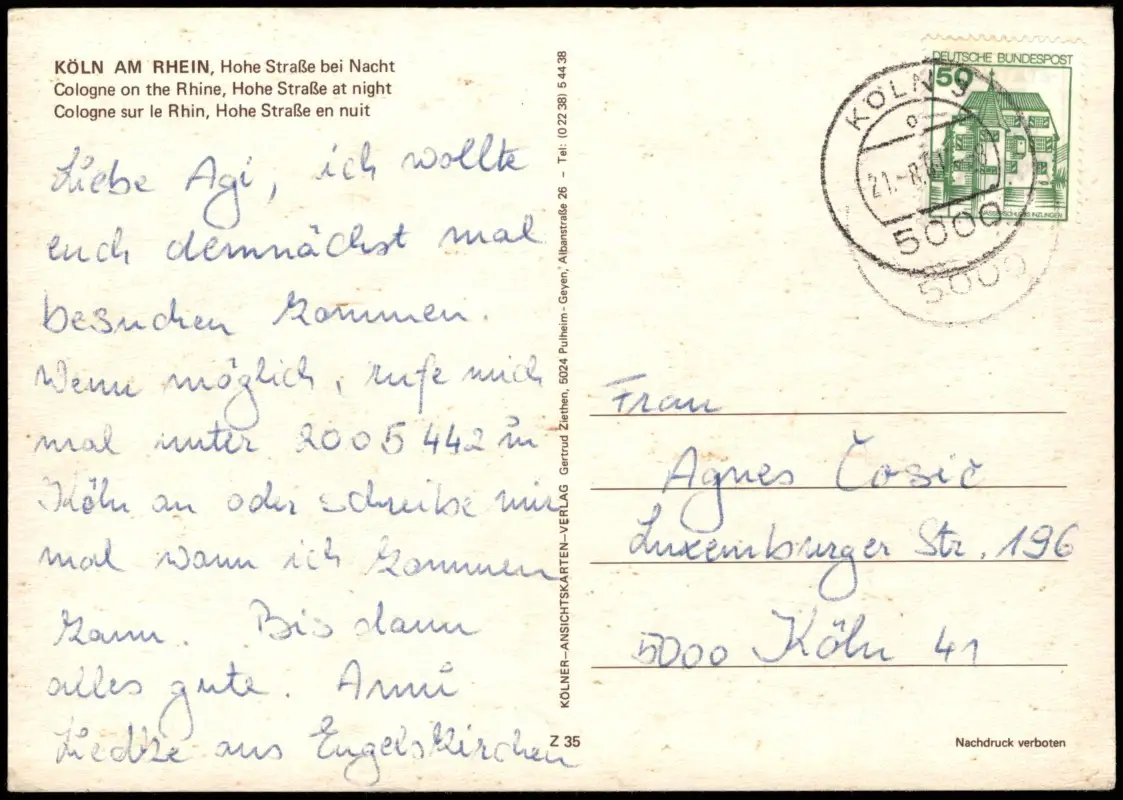 KÖLN AM RHEIN, Hohe Straße bei Nacht
Cologne on the Rhine, Hohe Straße at night
Cologne sur le Rhin, Hohe Straße en nuit
Liebe Agi, ich wollte
euch demnächst mal
besuchen kommen.
Wenn möglich, rufe mich
mal unter 2005442 in
Köln an oder schreibe mir
mal wann ich kommen
kann. Bis dann
alles gute. Anni
Liedtke aus Engelskirchen
KÖLNER-ANSICHTSKARTEN-VERLAG Gertrud Ziethen, 5024 Pulheim-Geyen, Albanstraße 26 - Tel: (0 22 38) 5 44 38
Z 35
DEUTSCHE BUNDESPOST
50
WASSERSCHLOSS INZLINGEN
KÖLN
21.-8.
5000
5000
Frau
Agnes Čosić
Luxemburger Str. 196
5000 Köln 41
Nachdruck verboten